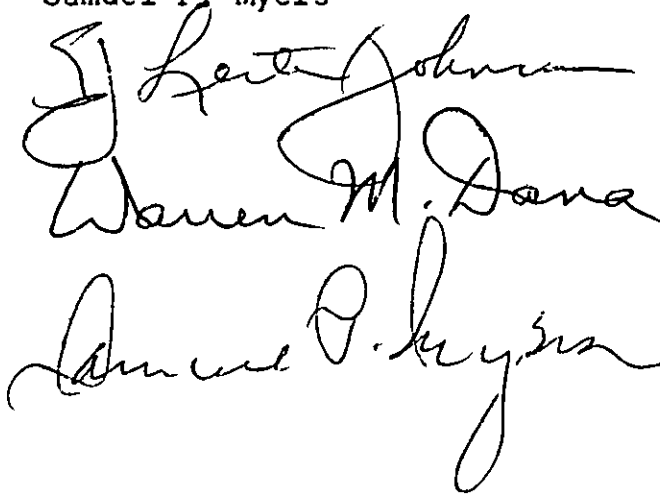 Samuel P. Myers
Lester Johnson
Warren M. Dana
Samuel P. Myers